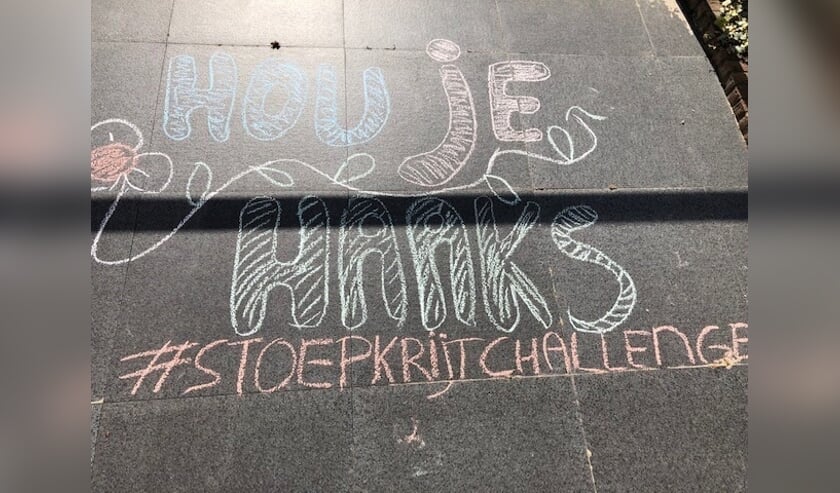 HOU je
HAAKS
#STOEPKRijTCHALLENGE